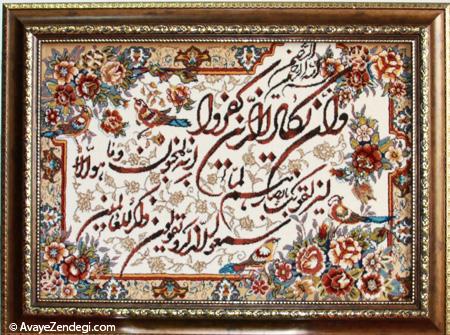 بسم الله الرحمن الرحیم
وان یکاد الذین کفروا
لیزلقونک بابصارهم لما
سمعوا الذکر و یقولون
انه لمجنون و ما هو الا
ذکر للعالمین
© AvayeZendegi.com